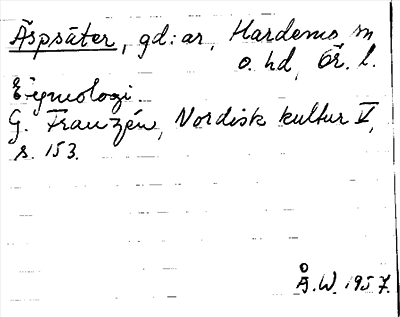 Äspsäter, gd:ar, Hardemo sn
o. hd, Ör. l.
Etymologi.
G. Franzén, Nordisk kultur V,
s. 153.
Å.W. 1957.